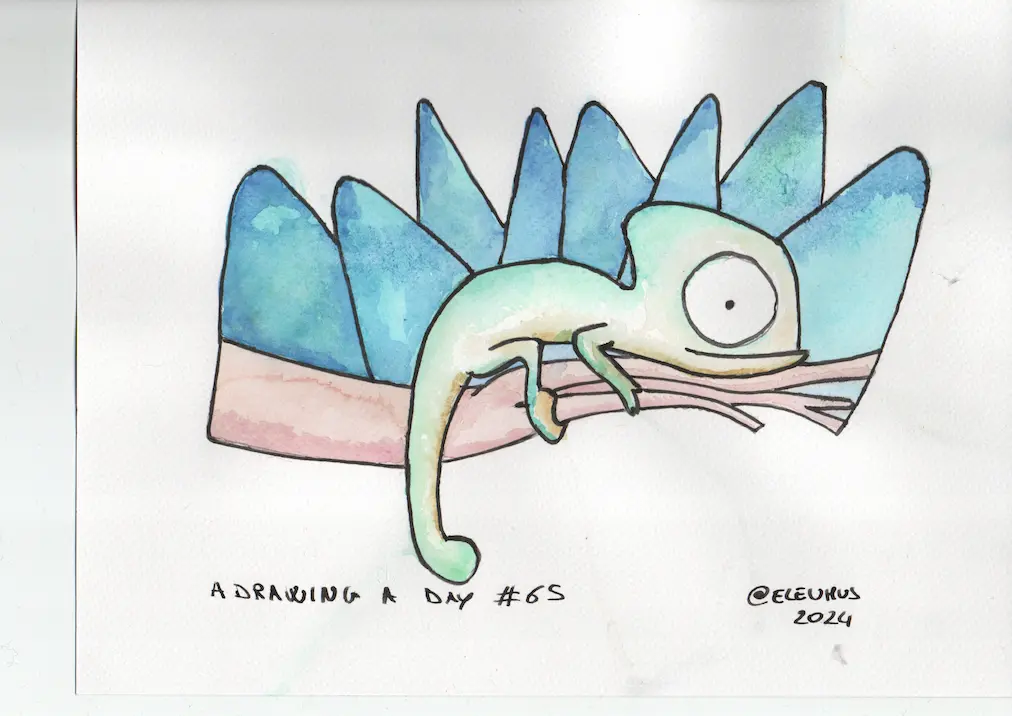 A DRAWING A DAY #65
@ELEUNUS
2024